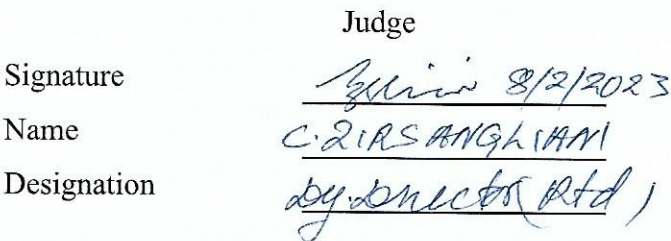 Judge
Signature 8/2/2023
Name C. ZIRSANGLIANI
Designation Dy. Director (Rtd)